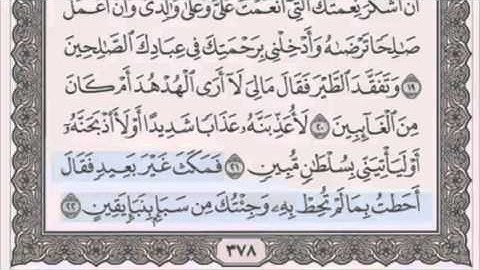 أَنْ أَشْكُرَ نِعْمَتَكَ ٱلَّتِىٓ أَنْعَمْتَ عَلَىَّ وَعَلَىٰ وَٰلِدَىَّ وَأَنْ أَعْمَلَ
صَٰلِحًا تَرْضَىٰهُ وَأَدْخِلْنِى بِرَحْمَتِكَ فِى عِبَادِكَ ٱلصَّٰلِحِينَ
١٩ وَتَفَقَّدَ ٱلطَّيْرَ فَقَالَ مَالِىَ لَآ أَرَى ٱلْهُدْهُدَ أَمْ كَانَ
مِنَ ٱلْغَآئِبِينَ ٢٠ لَأُعَذِّبَنَّهُۥ عَذَابًا شَدِيدًا أَوْ لَأَا۟ذْبَحَنَّهُۥٓ
أَوْ لَيَأْتِيَنِّى بِسُلْطَٰنٍ مُّبِينٍ ٢١ فَمَكَثَ غَيْرَ بَعِيدٍ فَقَالَ
أَحَطتُ بِمَا لَمْ تُحِطْ بِهِۦ وَجِئْتُكَ مِن سَبَإٍۭ بِنَبَإٍ يَقِينٍ ٢٢
٣٧٨